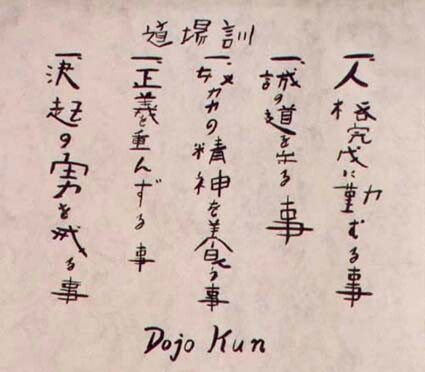 道場訓
一、人格完成に勤むる事
一、誠の道を守る事
一、努力の精神を養う事
一、正義を重んずる事
一、決起の勇を戒る事
Dojo Kun